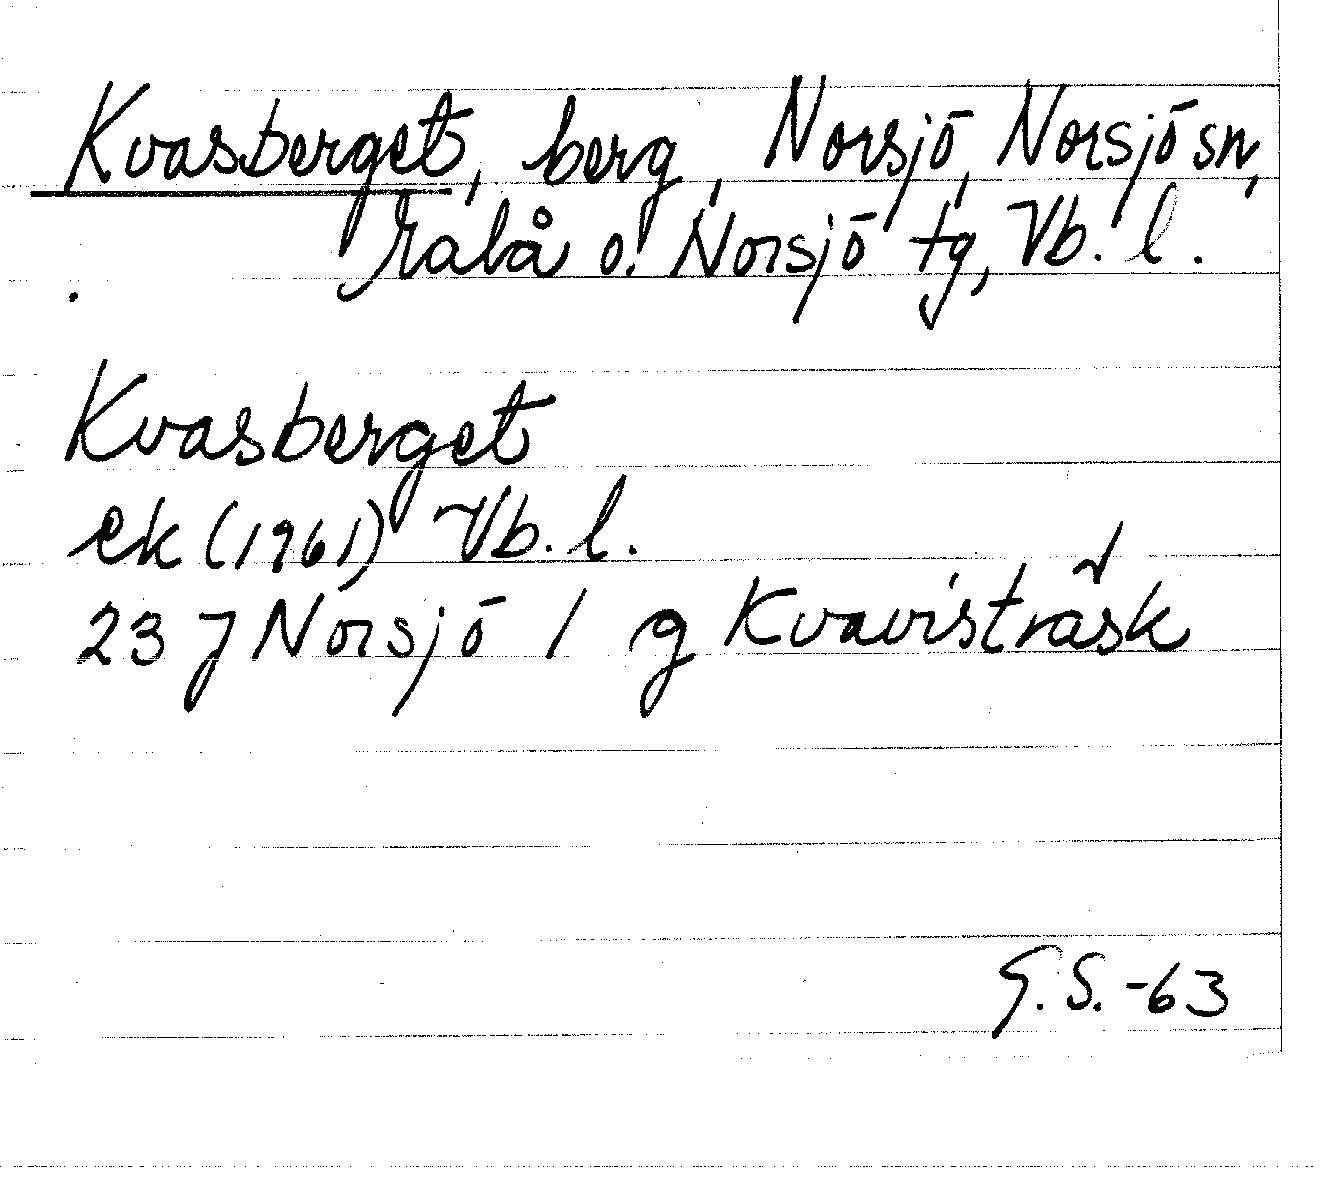 Kvasberget, berg, Norsjö, Norsjö sn,
Malå o. Norsjö tg, Vb. l.
Kvasberget
ek (1961) Vb. l.
23 J Norsjö / g Kvavisträsk
G.S. -63